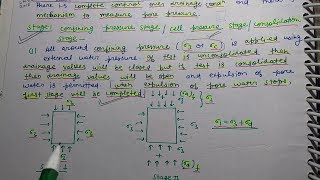 there is complete control over drainage cond and there is
mechanism to measure pore pressure.
Stage I / confining pressure stage / cell pressure stage / consolidation
stage -
Q) All around confining pressure (σ3 or σc) is applied using
if test is unconsolidated then
drainage valves will be closed but if test is consolidated
then drainage valve will be open and expulsion of pore
water is permitted. When expulsion of pore water stops,
first stage will be completed.
σ3
(σd)f
σ3
σ3
σ3
σ3
σ1 = σ3 + σd
+
(σd)f
Stage II